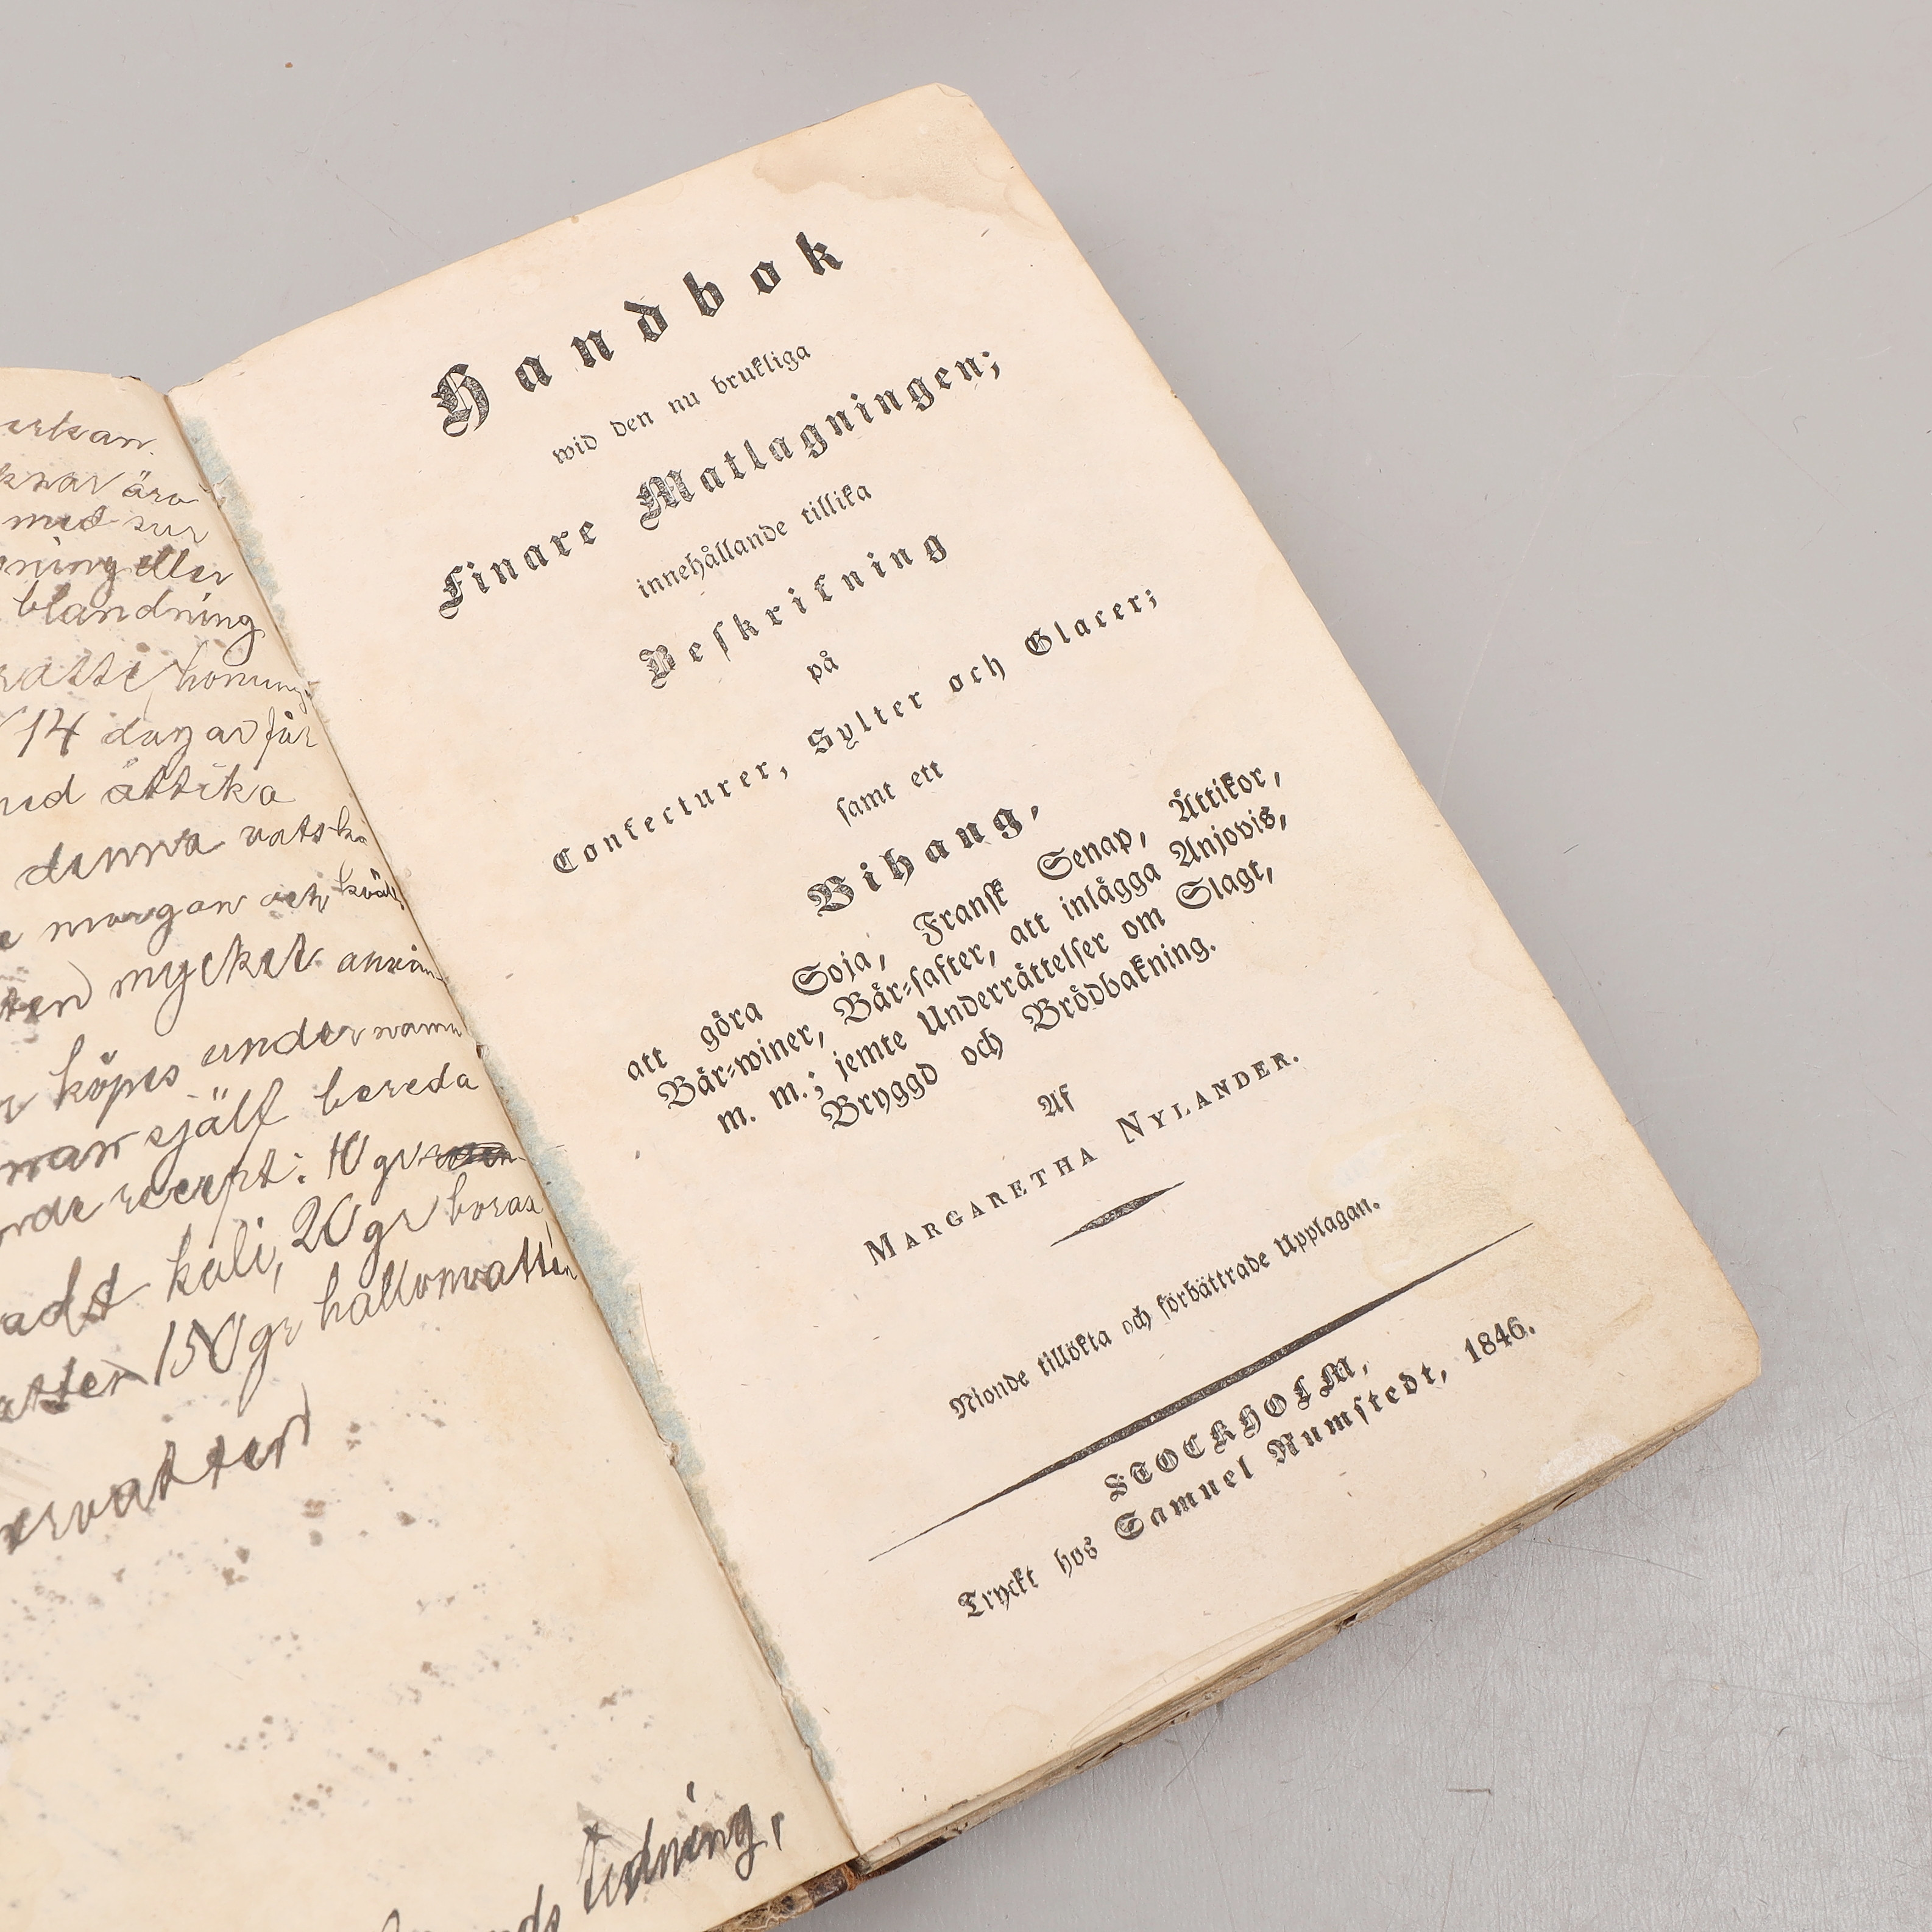 ärv
med sur
ning eller
blandning
honung
14 dagar för
med ättika
denna vätska
morgon och kväll
mycket använ-
köpes under namn
man själf bereda
recept: 10 gr
kali, 20 gr borax
150 gr hallonvatten
ervatten
tidning,
Handbok
wid den nu brukliga
Finare Matlagningen;
innehållande tillika
Beskrifning
på
Confecturer, Sylter och Glacer;
samt ett
Bihang,
att göra Soja, Fransk Senap, Ättikor,
Bär-winer, Bär-safter, att inlägga Anjovis,
m. m.; jemte Underrättelser om Slagt,
Bryggd och Brödbakning.
Af
MARGARETHA NYLANDER.
Nionde tillökta och förbättrade Upplagan.
STOCKHOLM,
Tryckt hos Samuel Rumstedt, 1846.